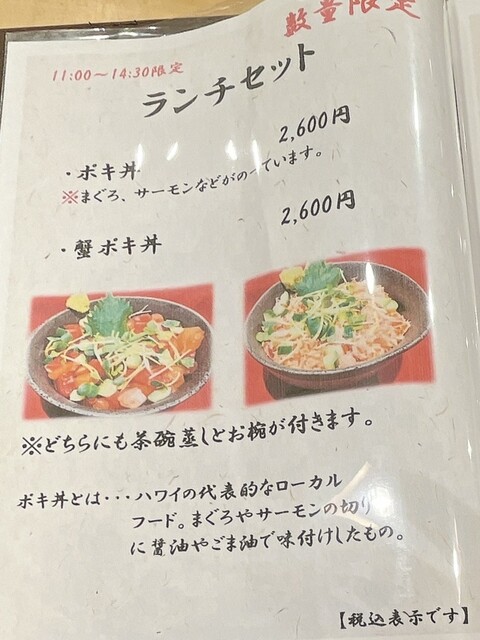 数量限定
11:00～14:30限定
ランチセット
2,600円
・ポキ丼
※まぐろ、サーモンなどがのっています。
2,600円
・蟹ポキ丼
※どちらにも茶碗蒸しとお椀が付きます。
ポキ丼とは・・・ハワイの代表的なローカル
フード。まぐろやサーモンの切り
に醤油やごま油で味付けしたもの。
【税込表示です】